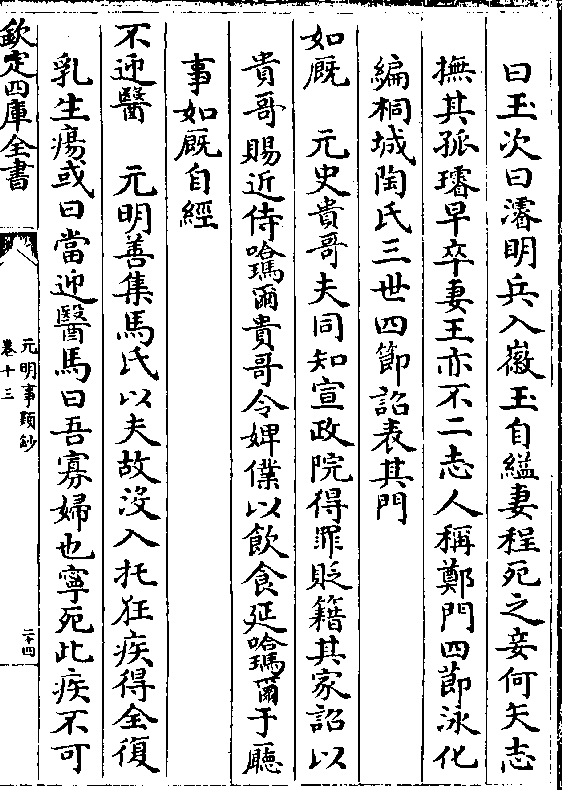 曰玉次曰濬明兵入徽玉自縊妻程死之妾何矢志
撫其孤璿早卒妻王亦不二志人稱鄭門四節泳化
編桐城陶氏三世四節詔表其門
如廐　元史貴哥夫同知宣政院得罪貶籍其家詔以
貴哥賜近侍哈瑪爾貴哥令婢僕以飲食延哈瑪爾于廳
事如廐自經
不迎醫　元明善集馬氏以夫故沒入托狂疾得全復
乳生瘍或曰當迎醫馬曰吾寡婦也寧死此疾不可
欽定四庫全書
元明事類鈔
卷十三
二十四